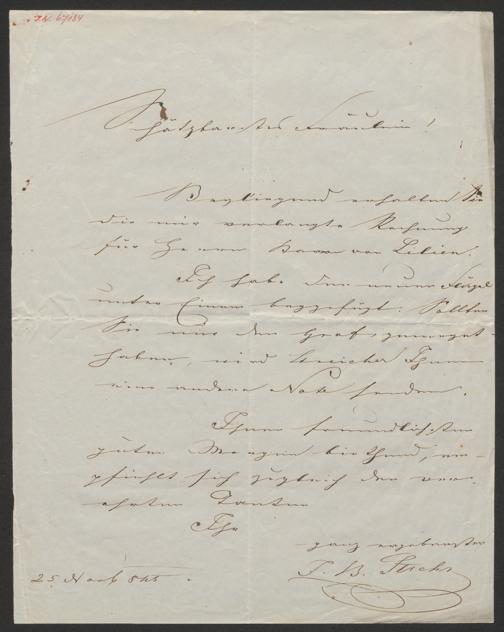 Schätzbarstes Fräulein!
Beyliegend erhalten Sie
die mir verlangte Rechnung
für Herrn Baron von Lilien.
Ich habe den neuen Flügel
unter Einem beygefügt. Sollten
Sie nur den
haben, wird Streicher Ihnen
eine andere Note senden.
Ihnen freundlichsten
guten Morgen biethend, em-
pfiehlt sich zugleich der ver-
ehrten Tanten
Ihr
ganz ergebenster
J. B. Streicher